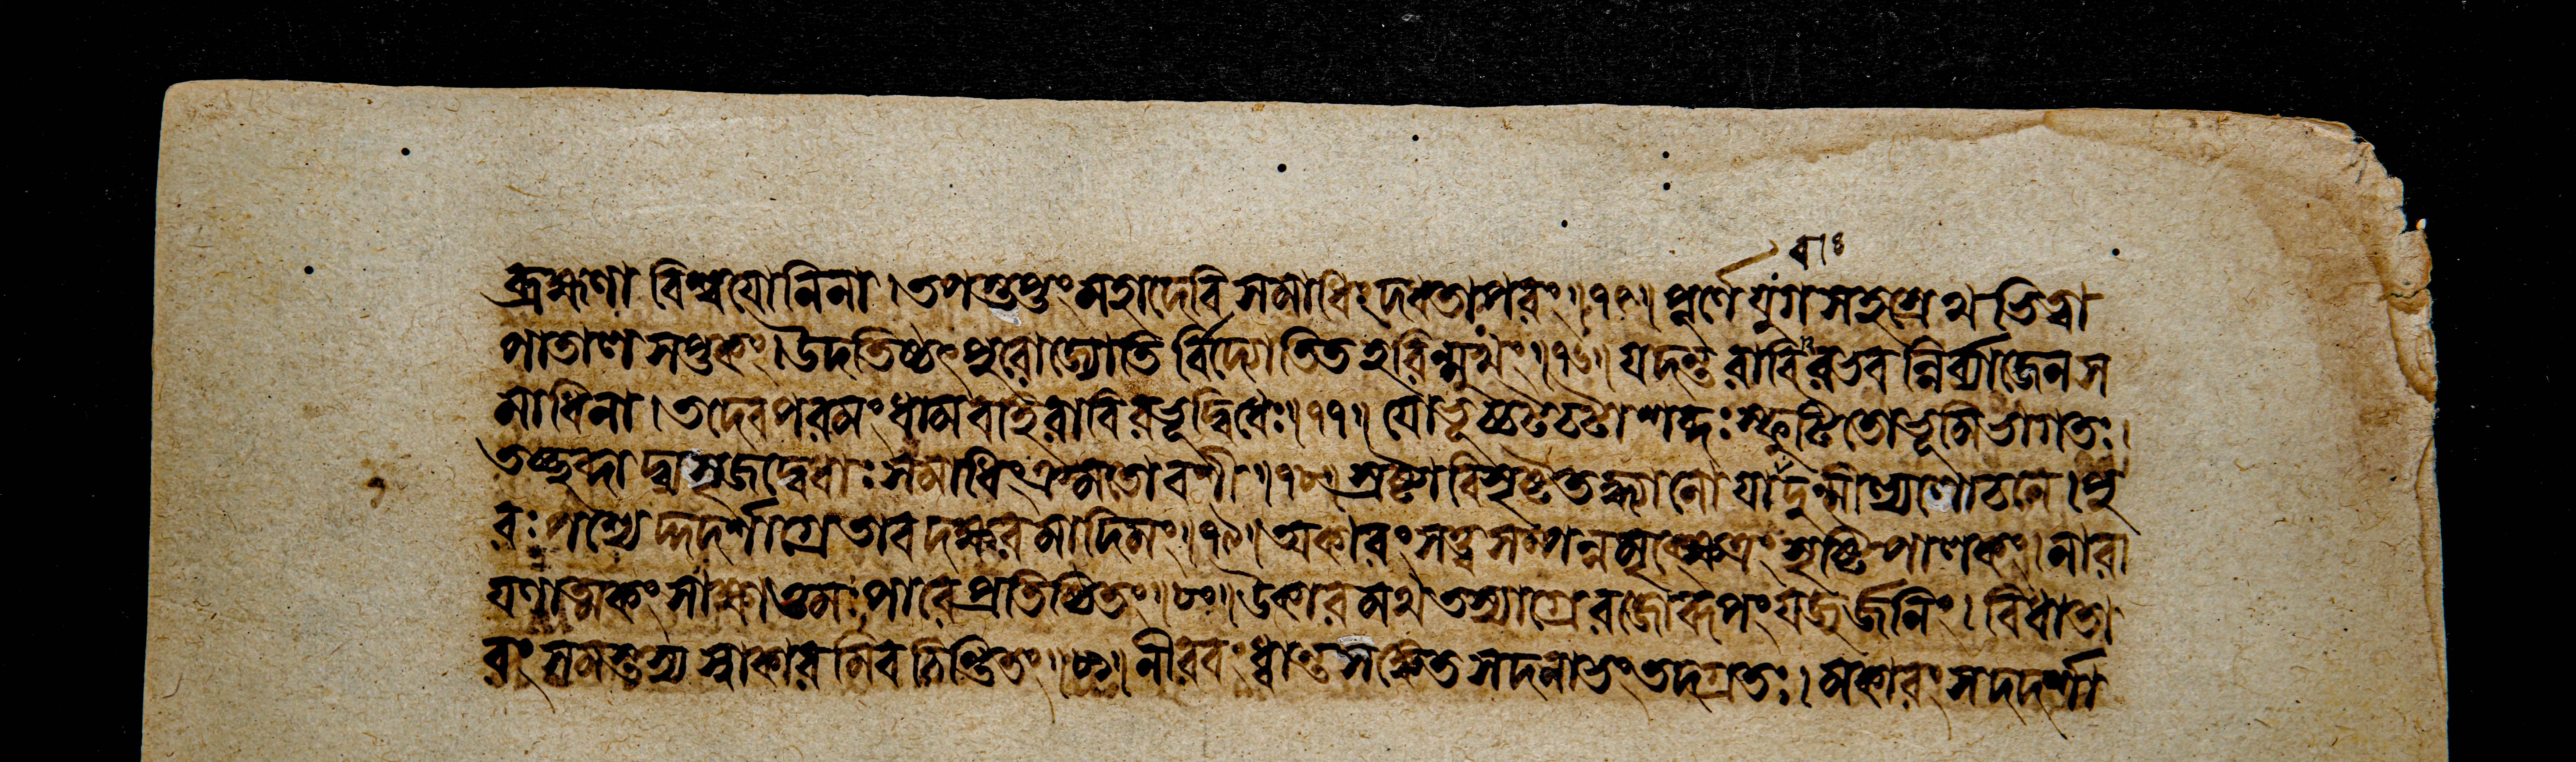 ব্রহ্মণা বিশ্বযোনিনা । তপস্তপ্তং মহাদেবি সমাধিং দধতা পরং ॥ ৭৫ ॥ পূর্ণে যুগসহস্রেথ ভিত্বা
পাতাল সপ্তকং । উদতিষ্ঠৎ পুরোজ্যোতি র্বিদ্যোতিত হরিন্মুখং ॥ ৭৬ ॥ যদন্তরাবিরভবন্নির্ব্যাজেন স
মাধিনা । তদেব পরমং ধাম বাহরাবিরভূদ্বিধেঃ ॥ ৭৭ ॥ যোভূচ্চটচটা শব্দঃ স্ফুটিতো ভূমিভাগতঃ ।
তচ্ছব্দা দ্ব্যসৃজদ্বেধাঃ সমাধিং ক্রমতো বশী ॥ ৭৮ ॥ স্রষ্টা বিসৃষ্টতদ্ধ্যানো যাবদুন্মীল্যলোচনে । পু
রঃ পশ্যে দ্দদর্শাগ্রে তাবদক্ষরমাদিমং ॥ ৭৯ ॥ অকারং সত্ত্বসম্পন্নমৃক্ক্ষেত্রং সৃষ্টিপালকং । নারা
যণাত্মকং সাক্ষাত্তমঃ পারে প্রতিষ্ঠিতং ॥ ৮০ ॥ উকারমথ তস্যাগ্রে রজোরূপং যজুর্জনিং । বিধাতা
রং সমস্তস্য স্বাকারমিব বিম্বিতং ॥ ৮১ ॥ নীরবং ধ্বান্ত সঙ্কেত সদনাভং তদগ্রতঃ । মকারং স দদর্শা